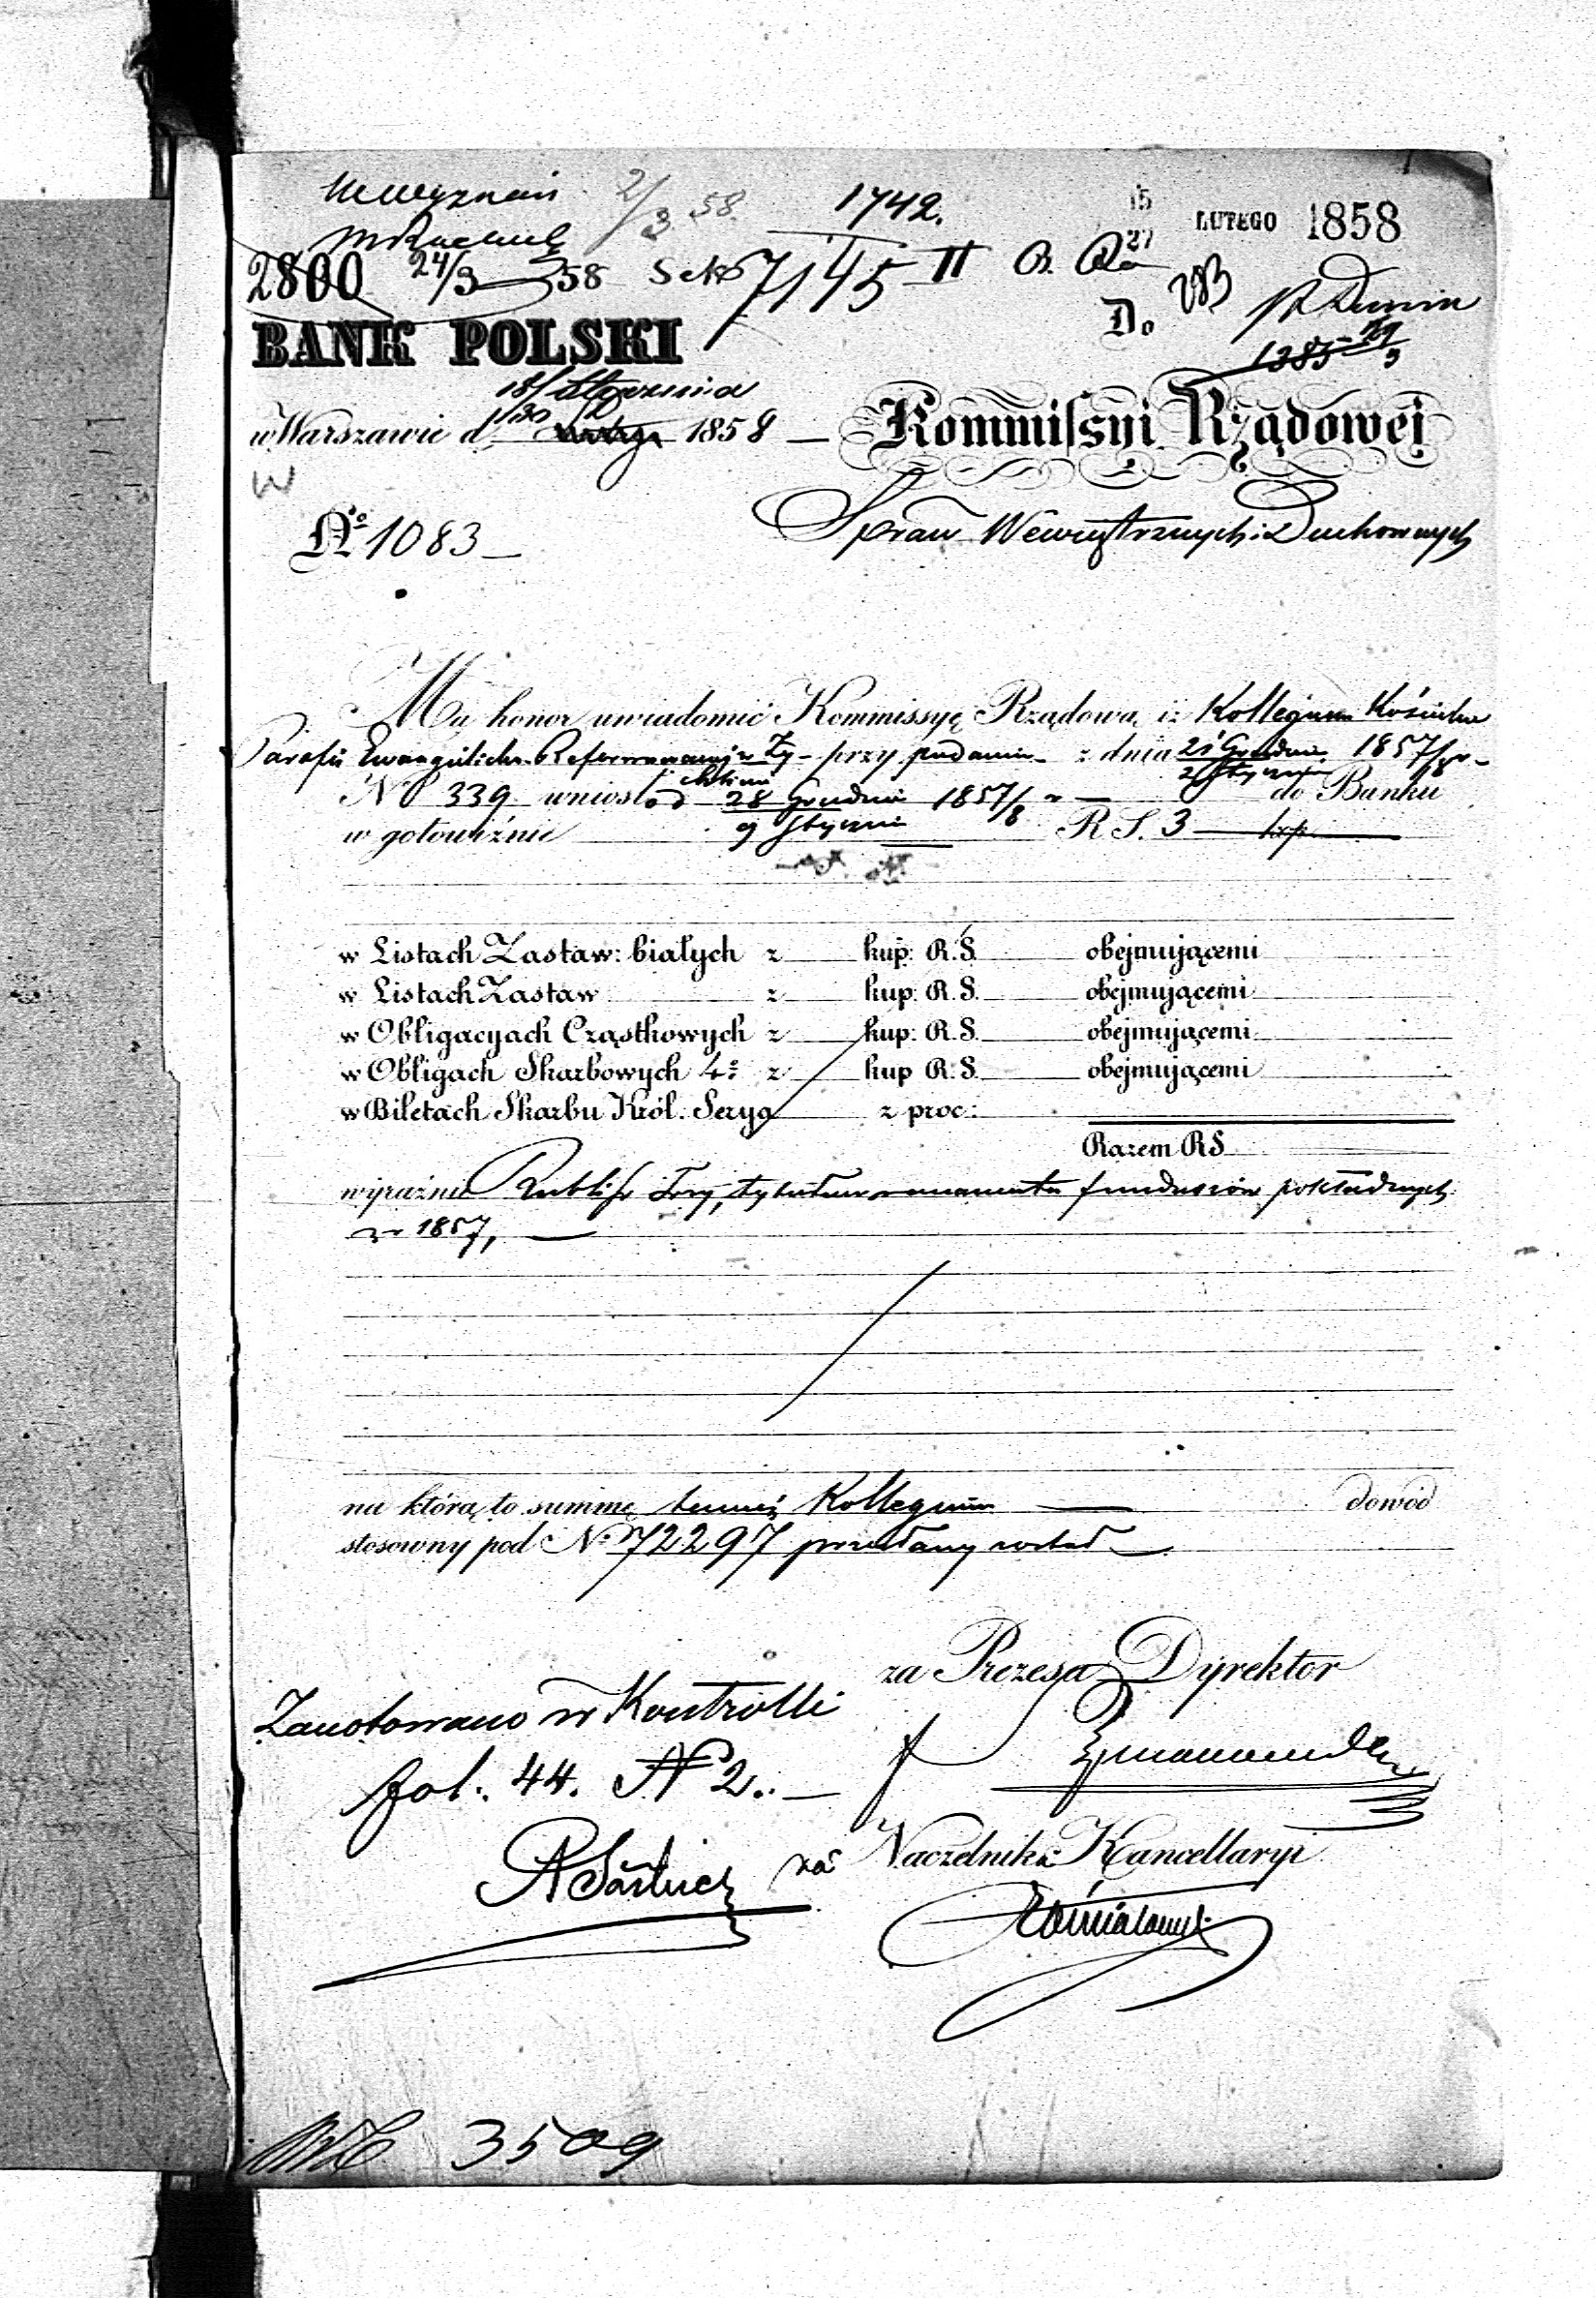 2/3 58.
1742.
15
27 LUTEGO 1858
2800 24/3 58 7145 II
Do
1385
BANK POLSKI
18/30 Stycznia
w Warszawie d. Lutego 1858
Kommissyi Rządowej
W
Spraw Wewnętrznych i Duchownych
No 1083
Ma honor uwiadomić Kommissyę Rządową, iż Kollegium Kościelne
Parafii Ewangelicko Reformowanej w przy podaniu z dnia 21 Grudnia 1857/8 r.
2 Stycznia
No 339 wniosło d 28 Grudnia 1857/8 r do Banku
9 Stycznia
w gotowiźnie R S. 3
w Listach Zastaw: białych z kup: R.S. obejmującemi
w Listach Zastaw z kup: R.S. obejmującemi
w Obligacyach Cząstkowych z kup: R.S. obejmującemi
w Obligach Skarbowych 4% z kup R.S. obejmującemi
w Biletach Skarbu Król. Seryą z proc:
Razem RS
wyraźnie Rubli sr Trzy, tytułem remanentu funduszów pokładnych
z r 1857,
na którą to summę temuż Kollegium dowód
stosowny pod No 72297 przesłany został
za Prezesa Dyrektor
Zanotowano w Kontrolli
fol: 44. No 2.
za Naczelnika Kancellaryi
3509